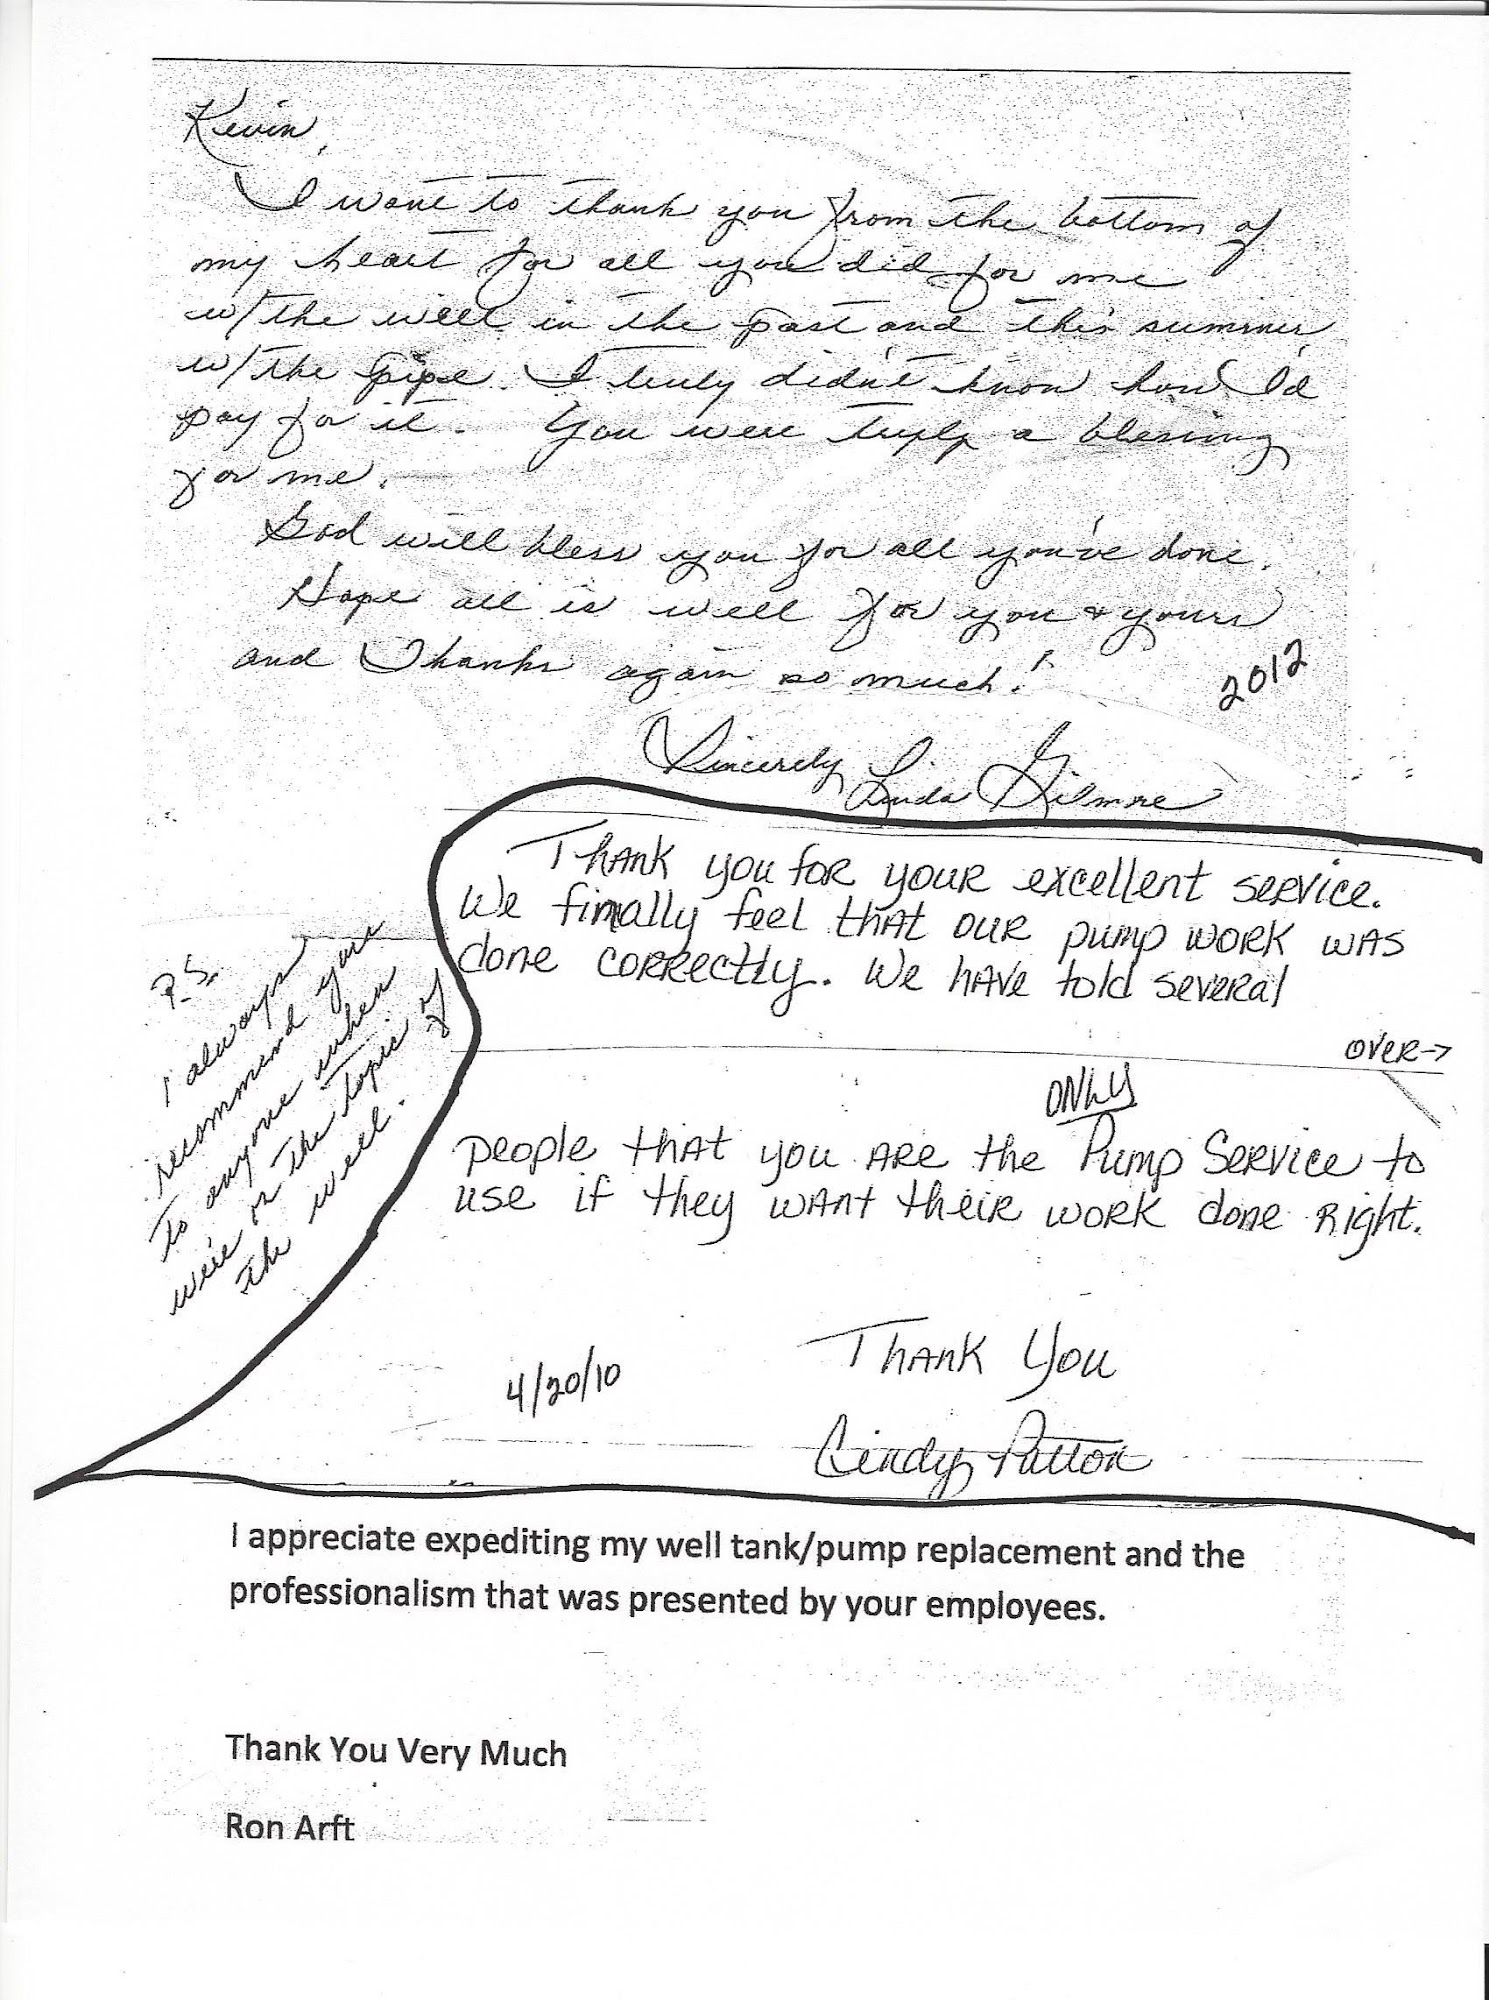 Kevin,
I want to thank you from the bottom of
my heart for all you did for me
w/the well in the past and this summer
w/the pipe. I truly didn't know how I'd
pay for it. You were truly a blessing
for me.
God will bless you for all you've done.
Hope all is well for you & yours
and Thanks again so much!
2012
Sincerely Linda Gilmore
P.S.
I always
recommend you
to anyone when
we're on the topic of
the well.
Thank you for your excellent service.
We finally feel that our pump work was
done correctly. We have told several
over→
ONLY
people that you are the Pump Service to
use if they want their work done right.
Thank You
4/20/10
Cindy Patton
I appreciate expediting my well tank/pump replacement and the
professionalism that was presented by your employees.
Thank You Very Much
Ron Arft